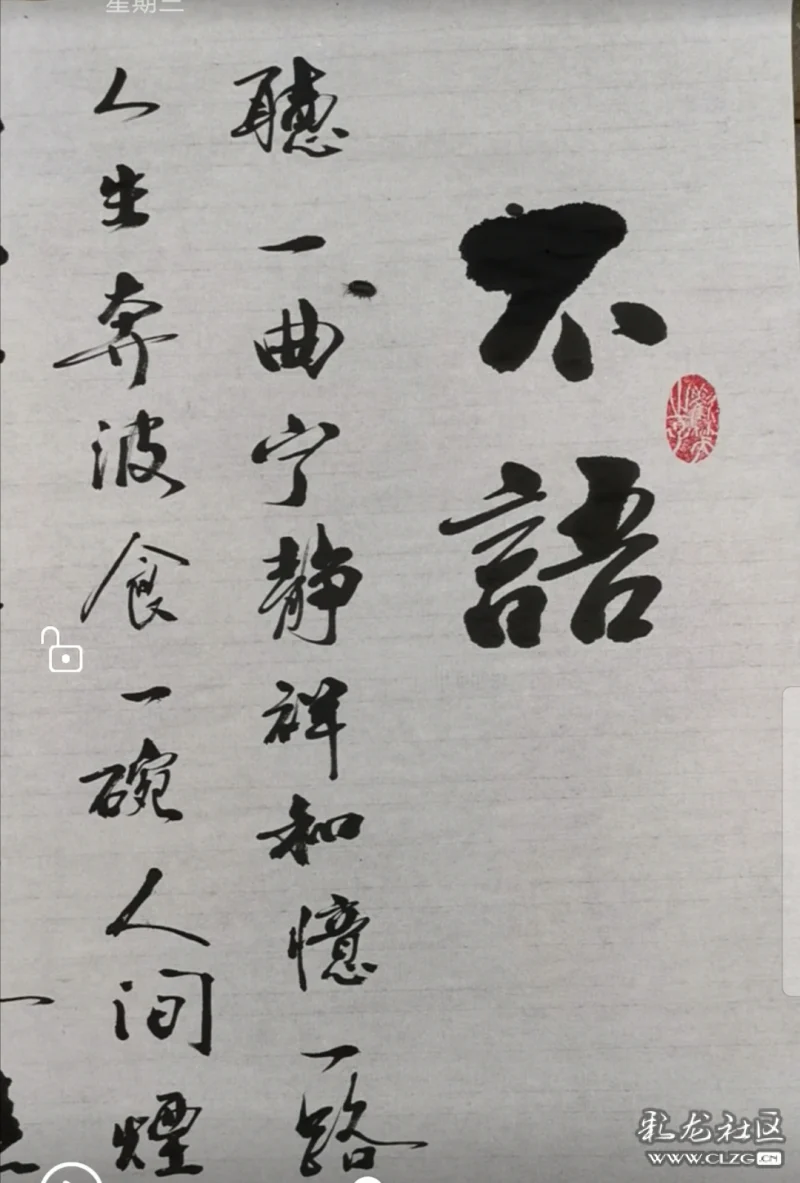 星期二
不語
聽一曲宁静祥和憶一路
人生奔波食一碗人间煙
彩龙社区
WWW.CLZG.CN